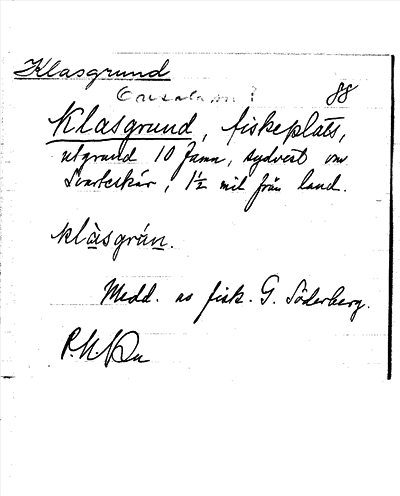 Klasgrund
88
Klasgrund, fiskeplats,
utgrund 10 famn, sydvest om
Svarteskär, 1½ mil från land.
klàsgrán.
Medd. av fisk. G. Söderberg.